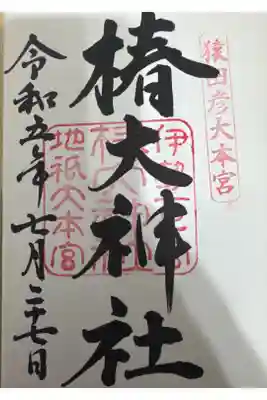 猿田彦大本宮
椿大神社
伊勢一之宮
地祇大本宮
令和五年七月二十七日